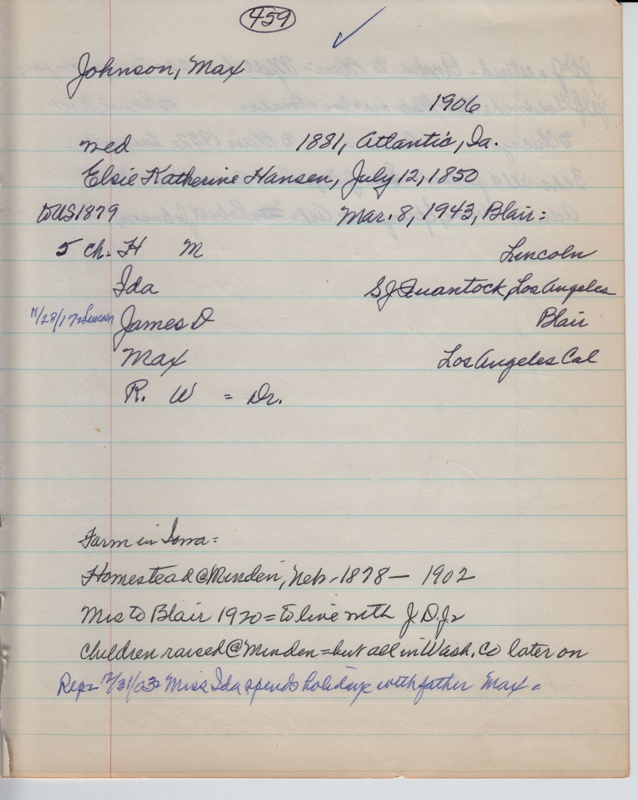 459
Johnson, Max
1906
wed 1881, Atlantic, Ia.
Elsie Katherine Hansen, July 12, 1850
to US 1879 Mar. 8, 1943, Blair =
5 ch. = H M Lincoln
Ida S J Quantock, Los Angeles
11/28/17 = Lincoln James D Blair
Max Los Angeles Cal
R. W = Dr.
Farm in Iowa =
Homestead @ Minden, Neb - 1878 - 1902
Mrs to Blair 1920 = to live with J. D. Jr
Children raised @ Minden = but all in Wash. Co later on
Rep = 12/31/03 = Miss Ida spends holidays with father Max =